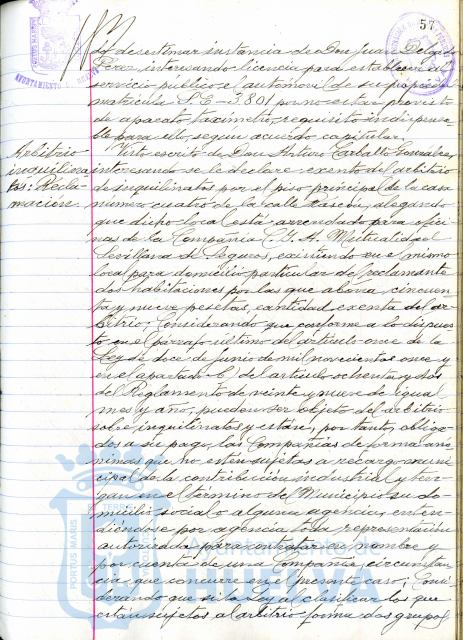 57
AYUNTAMIENTO
PORTUS MARIS
desestimar instancia de Don Juan Delgado
Pérez interesando licencia para establecer al
servicio público el automóvil de su propiedad
matrícula S.E-3.801 por no estar provisto
de aparato taxímetro, requisito indispensa
ble para ello, según acuerdo capitular.
Arbitrio
inquilina
tos: Recla-
mación.
Visto escrito de Don Arturo Carballo González,
interesando se le declare exento del arbitrio
de inquilinatos por el piso principal de la casa
número cuatro de la calle Rascón, alegando
que dicho local está arrendado para ofici
nas de la Compañía Mutualidad
Sevillana de Seguros, existiendo en el mismo
local para domicilio particular del reclamante
dos habitaciones por las que abona cincuen
ta y nueve pesetas, cantidad exenta del ar
bitrio; Considerando que conforme a lo dispues
to en el párrafo último del artículo once de la
Ley de doce de Junio de mil novecientos once y
en el apartado b del artículo ochenta y dos
del Reglamento de veinte y nueve de igual
mes y año, pueden ser objeto del arbitrio
sobre inquilinatos y están, por tanto, obliga
dos a su pago, las Compañías de forma anó
nimas que no estén sujetas a recargo muni
cipal de la contribución industrial y ten
gan en el término del Municipio su do
micilio social o alguna agencia, enten
diéndose por agencia toda representación
autorizada para contratar a nombre y
por cuenta de una Compañía, circunstan
cia que concurre en el presente caso; Consi
derando que si la Ley al clasificar los que
están sujetos al arbitrio forma dos grupos
PORTUS MARIS
Ayuntamiento de
HUELVA